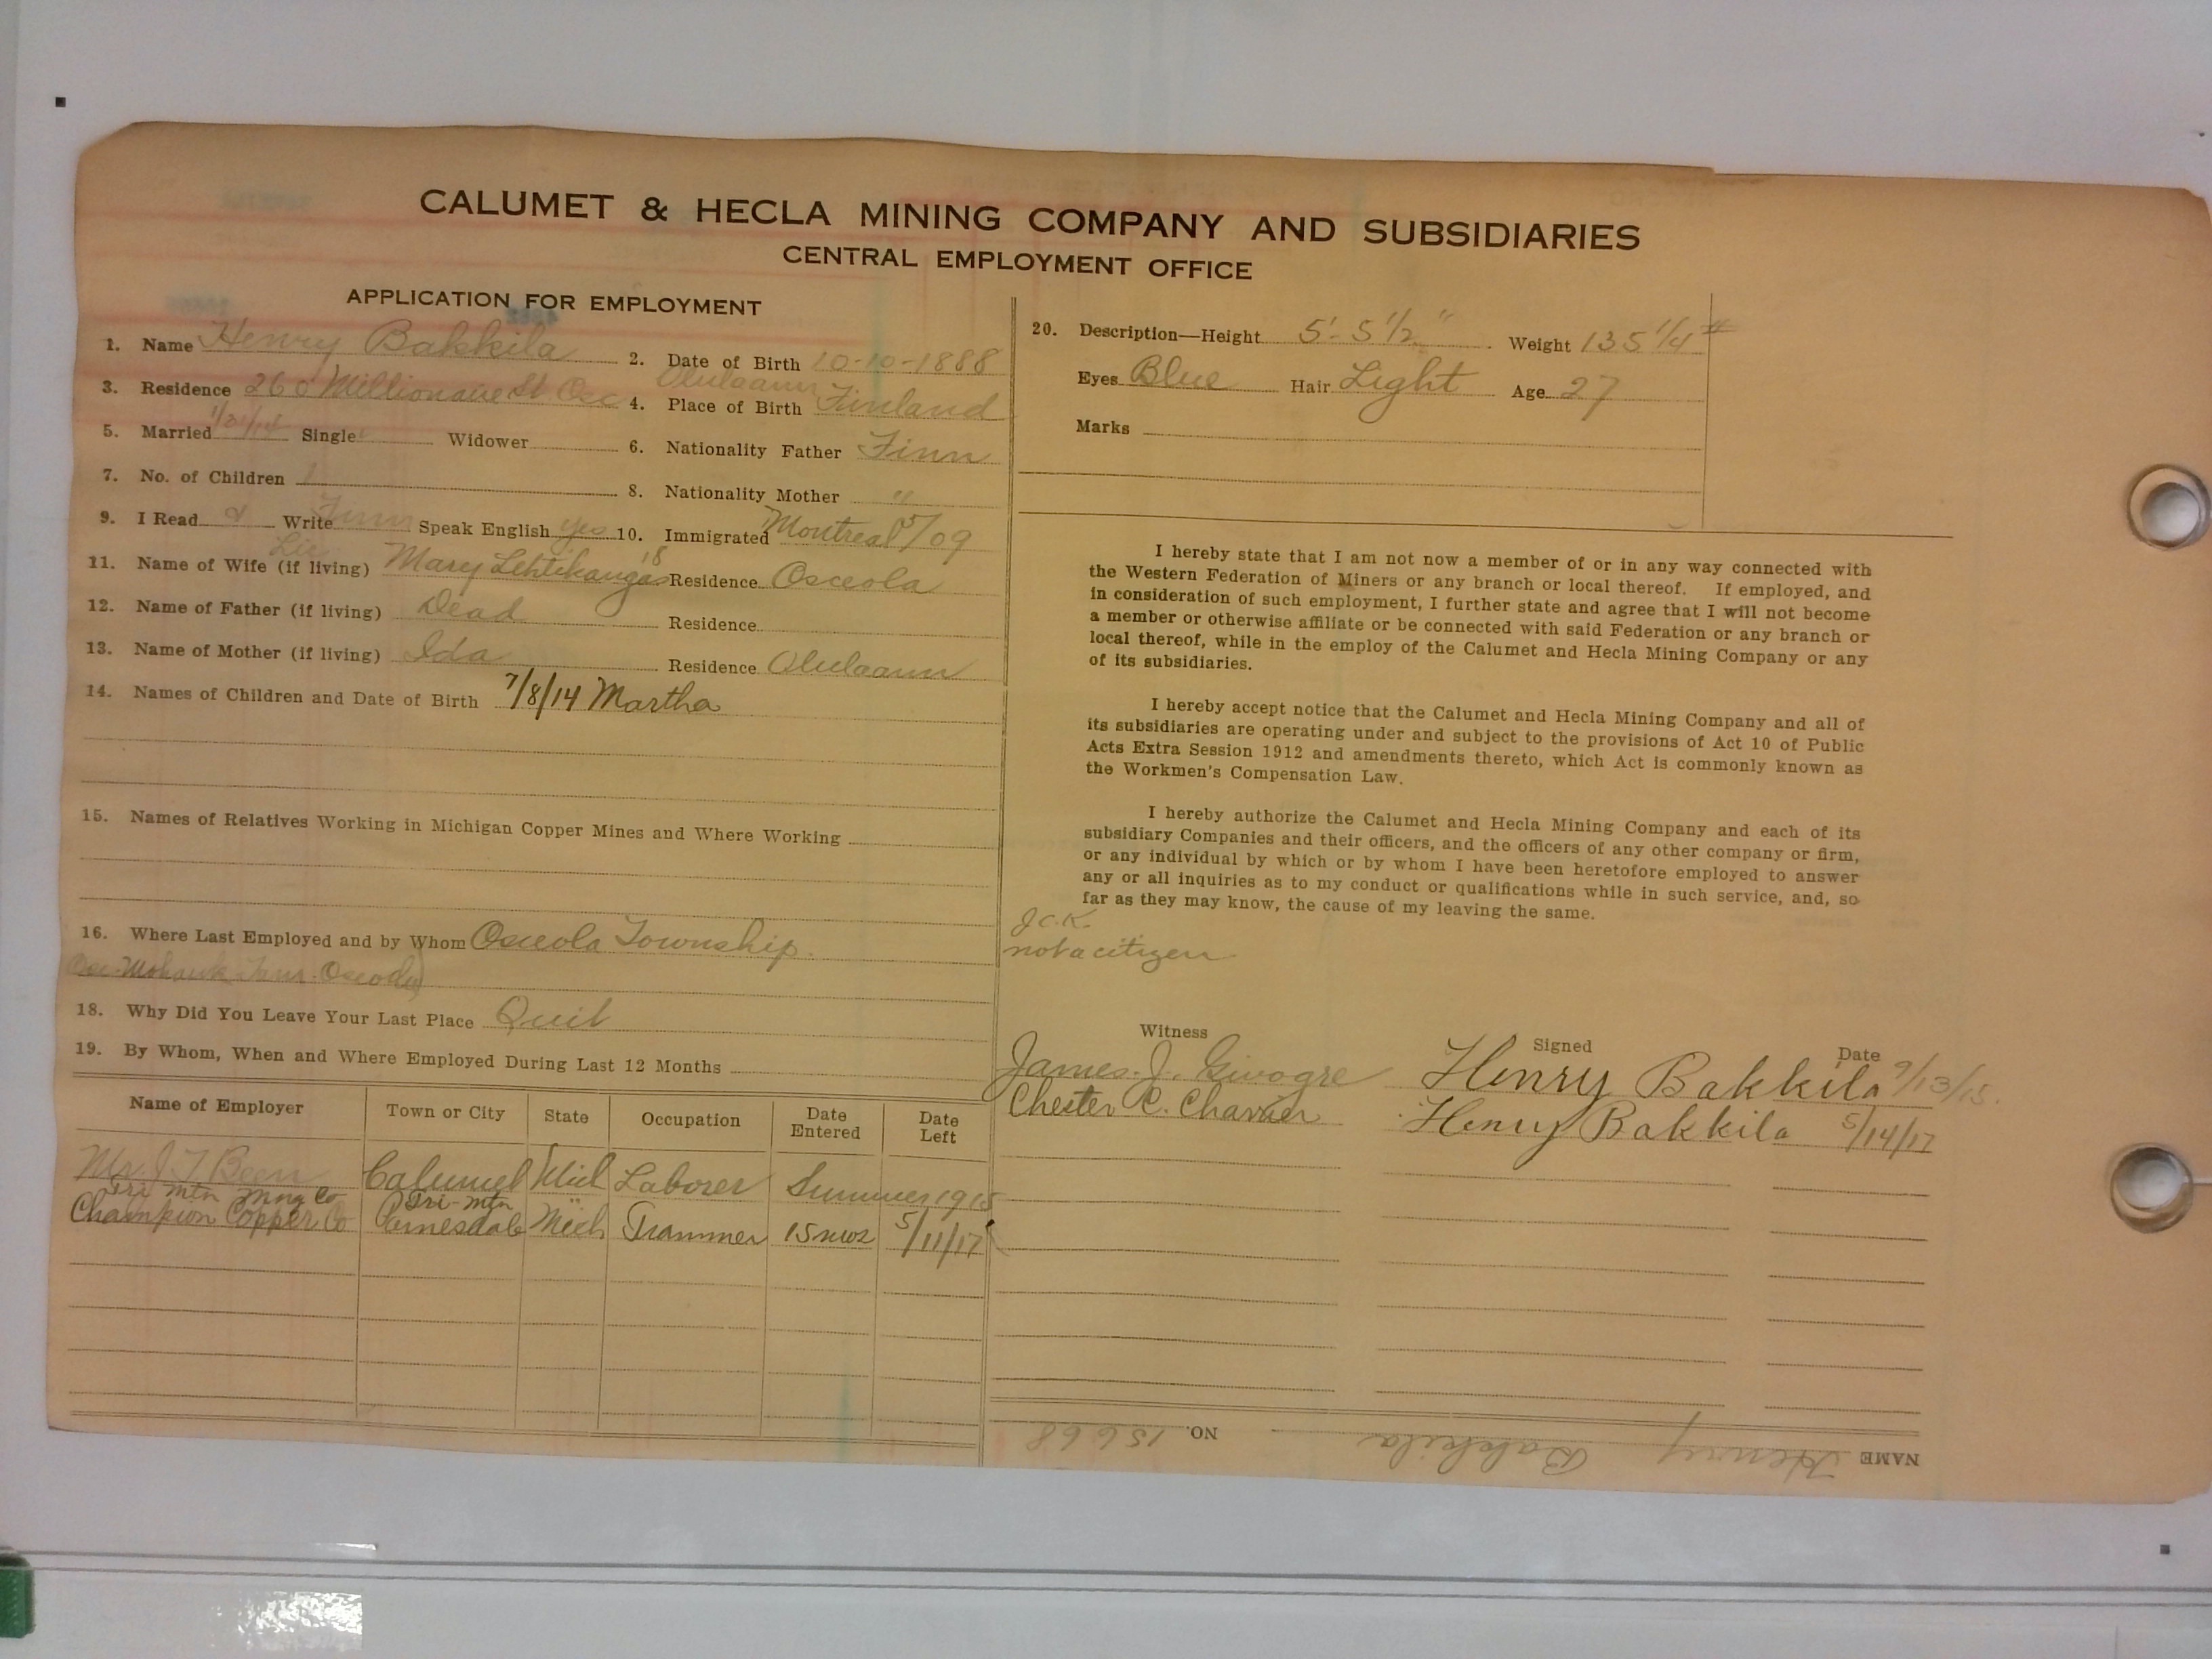 CALUMET & HECLA MINING COMPANY AND SUBSIDIARIES
CENTRAL EMPLOYMENT OFFICE
APPLICATION FOR EMPLOYMENT
1. Name Henry Bakkila 2. Date of Birth 10-10-1888
3. Residence 260 Millionaire St Osc 4. Place of Birth Finland
5. Married Single Widower 6. Nationality Father Finn
7. No. of Children 1 8. Nationality Mother "
9. I Read & Write Finn Speak English yes 10. Immigrated Montreal 5/09
11. Name of Wife (if living) Mary Lehtikangas Residence Osceola
12. Name of Father (if living) Dead Residence
13. Name of Mother (if living) Ida Residence
14. Names of Children and Date of Birth 7/8/14 Martha
15. Names of Relatives Working in Michigan Copper Mines and Where Working
16. Where Last Employed and by Whom Osceola Township.
Osc. Mohawk
18. Why Did You Leave Your Last Place Quit
19. By Whom, When and Where Employed During Last 12 Months
Name of Employer Town or City State Occupation Date Entered Date Left
Calumet Mich Laborer Summer 1915
Tri Mtn Mng Co Tri-Mtn
Champion Copper Co Painesdale Mich Trammer 15 mos 5/11/17
20. Description—Height 5'-5 1/2" Weight 135 1/4 #
Eyes Blue Hair Light Age 27
Marks
I hereby state that I am not now a member of or in any way connected with
the Western Federation of Miners or any branch or local thereof. If employed, and
in consideration of such employment, I further state and agree that I will not become
a member or otherwise affiliate or be connected with said Federation or any branch or
local thereof, while in the employ of the Calumet and Hecla Mining Company or any
of its subsidiaries.
I hereby accept notice that the Calumet and Hecla Mining Company and all of
its subsidiaries are operating under and subject to the provisions of Act 10 of Public
Acts Extra Session 1912 and amendments thereto, which Act is commonly known as
the Workmen's Compensation Law.
I hereby authorize the Calumet and Hecla Mining Company and each of its
subsidiary Companies and their officers, and the officers of any other company or firm,
or any individual by which or by whom I have been heretofore employed to answer
any or all inquiries as to my conduct or qualifications while in such service, and, so
far as they may know, the cause of my leaving the same.
J.C.K.
not a citizen
Witness Signed Date
James. J. Henry Bakkila 9/13/15.
Chester C. Henry Bakkila 5/14/17
NAME Henry Bakkila NO. 15668